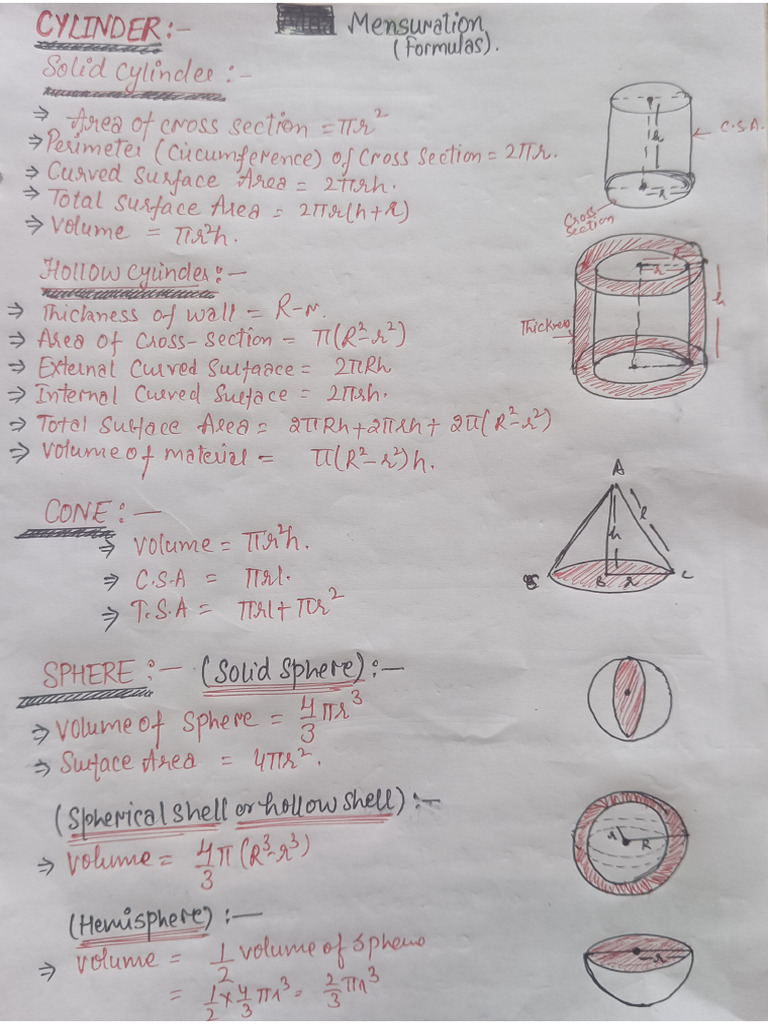 CYLINDER:-
Mensuration
(Formulas).
Solid Cylinder :-
⇒ Area of cross section = πr²
⇒ Perimeter (Cicumference) of Cross Section = 2πr.
⇒ Curved Surface Area = 2πrh.
⇒ Total Surface Area = 2πr(h+r)
⇒ Volume = πr²h.
h
r
C.S.A.
Cross
section
Hollow Cylinder:-
⇒ Thickness of wall = R-r.
⇒ Area of Cross-section = π(R²-r²)
⇒ External Curved Surfaace = 2πRh
⇒ Internal Curved Surface = 2πrh.
⇒ Total Surface Area = 2πRh+2πrh+ 2π(R²-r²)
⇒ Volume of material = π(R²-r²)h.
R
r
h
Thickness
CONE:-
⇒ Volume = πr²h.
⇒ C.S.A = πrl.
⇒ T.S.A = πrl+πr²
A
h
l
B
r
C
SPHERE:- (Solid Sphere):-
⇒ Volume of Sphere = 4/3 πr³
⇒ Surface Area = 4πr².
(Spherical Shell or hollow shell):-
⇒ Volume = 4/3 π(R³-r³)
r
R
(Hemisphere):-
⇒ Volume = 1/2 volume of Sphere
= 1/2 × 4/3 πr³ = 2/3 πr³
r